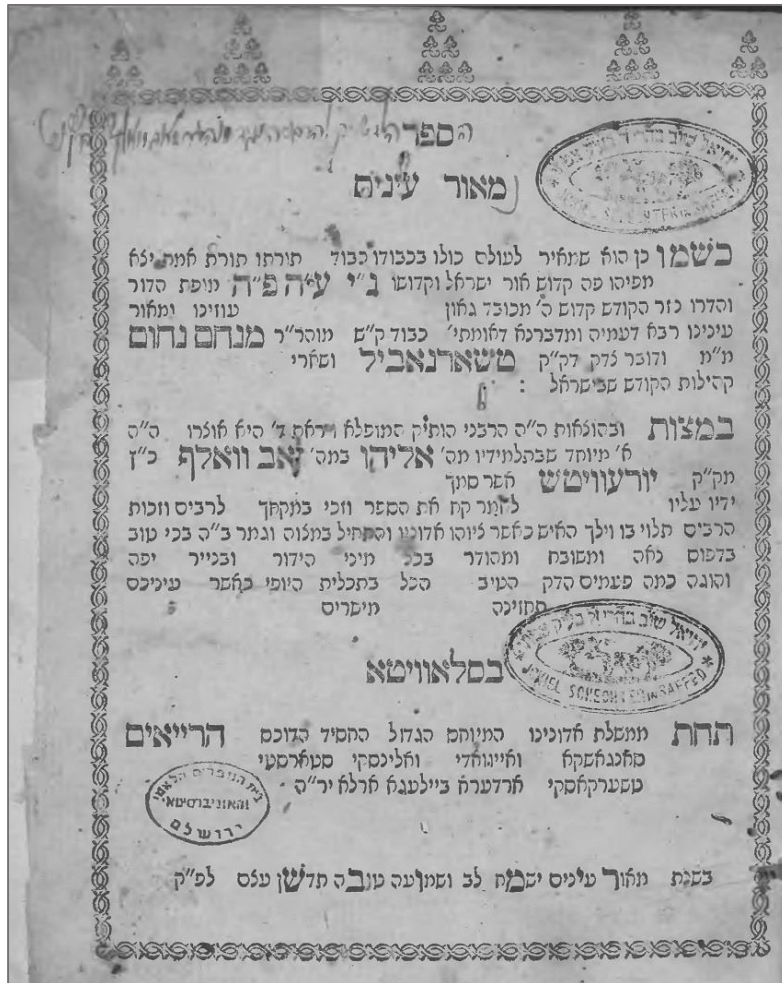 הספר
מאור עינים
יחיאל שוב בהר״ר
JOWIEL SCHECHTER IN SAFFED
כשמן כן הוא שמאיר לעולם כולו בכבודו כבוד תורתו תורת אמת יצא
מפיהו פה קדוש אור ישראל וקדושו נ״י ע״ה פ״ה מופת הדור
והדרו נזר הקודש קדוש ה׳ מכובד גאון עוזינו ומאור
עינינו רבא דעמיה ומדברנא דאומתי׳ כבוד ק״ש מוהר״ר מנחם נחום
מ״מ ודובר צדק דק״ק טשארנאביל ושארי
קהילות הקודש שבישראל :
במצות ובהוצאות ה״ה הרבני הותיק המופלא ויראת ד׳ היא אוצרו ה״ה
א׳ מיוחד שבתלמידיו מה׳ אליהו במה׳ זאב וואלף כ״ץ
מק״ק יורעוויטש אשר סמך
ידיו עליו לאמר קח את הספר וזכי במקחך לרבים וזכות
הרבים תלוי בו וילך האיש כאשר ציוהו אדוניו והתחיל במצוה וגמר ב״ה בכי טוב
בדפוס נאה ומשובח ומהודר בכל מיני הידור ובנייר יפה
והוגה כמה פעמים הדק היטיב הכל בתכלית היופי כאשר עיניכם
תחזינה מישרים
בסלאוויטא
יחיאל שוב בהר״ר
JOWIEL SCHECHTER IN SAFFED
תחת ממשלת אדונינו המיוחס הגדול החסיד הדוכס הרייאים
סאנגאשקא ואייגוואדי וואלינסקי סטארסטי
טשערקאסקי ארדערא ביילעגא ארלא יר״ה
בית הספרים הלאומי
והאוניברסיטאי
ירושלם
בשנת מאור עינים ישמח לב ושמועה טובה תדשן עצם לפ״ק